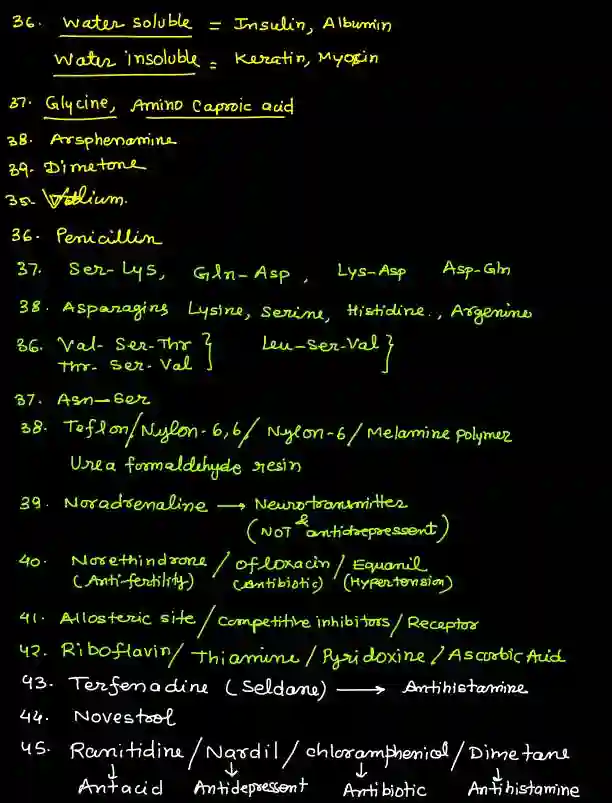 36. Water soluble = Insulin, Albumin
Water insoluble = Keratin, Myosin
37. Glycine, Amino Caproic acid
38. Arsphenamine
39. Dimetone
35. Valium.
36. Penicillin
37. Ser-Lys, Gln-Asp, Lys-Asp Asp-Gln
38. Asparagins Lysine, Serine, Histidine., Argenine
36. Val- Ser-Thr } Leu-Ser-Val }
Thr- Ser-Val
37. Asn-Ser
38. Teflon/Nylon-6,6/ Nylon-6/Melamine polymer
Urea formaldehyde resin
39. Noradrenaline → Neurotransmitter
& (NOT antidepressent)
40. Norethindrone / Ofloxacin / Equanil
(Anti-fertility) (antibiotic) (Hypertension)
41. Allosteric site / Competitive inhibitors / Receptor
42. Riboflavin / Thiamine / Pyridoxine / Ascorbic Acid
43. Terfenadine (Seldane) → Antihistamine
44. Novestrol
45. Ranitidine / Nardil / chloramphenicol / Dimetane
↓ ↓ ↓ ↓
Antacid Antidepressent Antibiotic Antihistamine